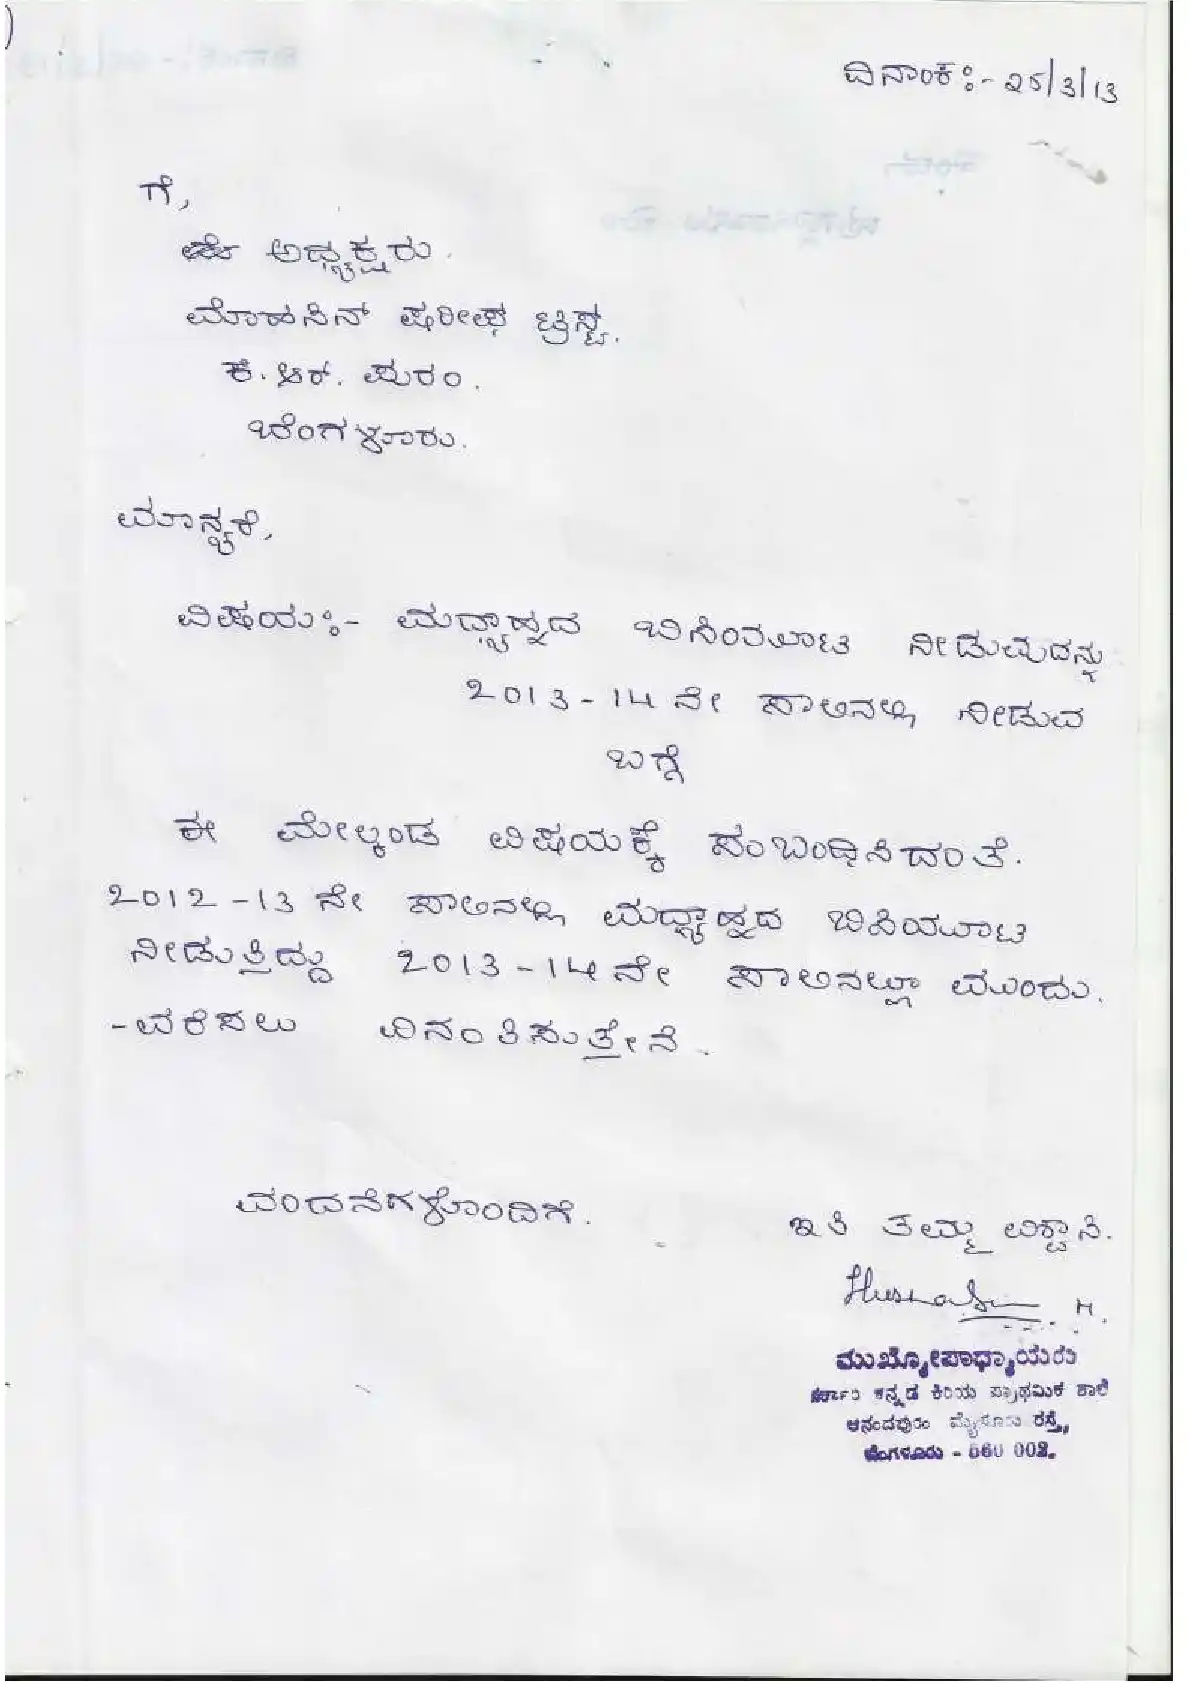 ದಿನಾಂಕ:- 25/3/13
ಗೆ,
ಅಧ್ಯಕ್ಷರು.
ಮೊಹಸಿನ್ ಷರೀಫ್ ಟ್ರಸ್ಟ್.
ಕೆ.ಆರ್. ಪುರಂ.
ಬೆಂಗಳೂರು.
ಮಾನ್ಯಕೆ,
ವಿಷಯ:- ಮಧ್ಯಾಹ್ನದ ಬಿಸಿಯೂಟ ನೀಡುವುದನ್ನು
2013-14ನೇ ಸಾಲಿನಲ್ಲಿ ನೀಡುವ
ಬಗ್ಗೆ
ಈ ಮೇಲ್ಕಂಡ ವಿಷಯಕ್ಕೆ ಸಂಬಂಧಿಸಿದಂತೆ.
2012-13ನೇ ಸಾಲಿನಲ್ಲಿ ಮಧ್ಯಾಹ್ನದ ಬಿಸಿಯೂಟ
ನೀಡುತ್ತಿದ್ದು 2013-14ನೇ ಸಾಲಿನಲ್ಲೂ ಮುಂದು.
-ವರೆಸಲು ವಿನಂತಿಸುತ್ತೇನೆ.
ವಂದನೆಗಳೊಂದಿಗೆ.
ಇತಿ ತಮ್ಮ ವಿಶ್ವಾಸಿ.
H.
ಮುಖ್ಯೋಪಾಧ್ಯಾಯರು
ಕನ್ನಡ ಕಿರಿಯ ಪ್ರಾಥಮಿಕ ಶಾಲೆ
ಆನಂದಪುರಂ ಮೈಸೂರು ರಸ್ತೆ,
ಬೆಂಗಳೂರು - 560 002.